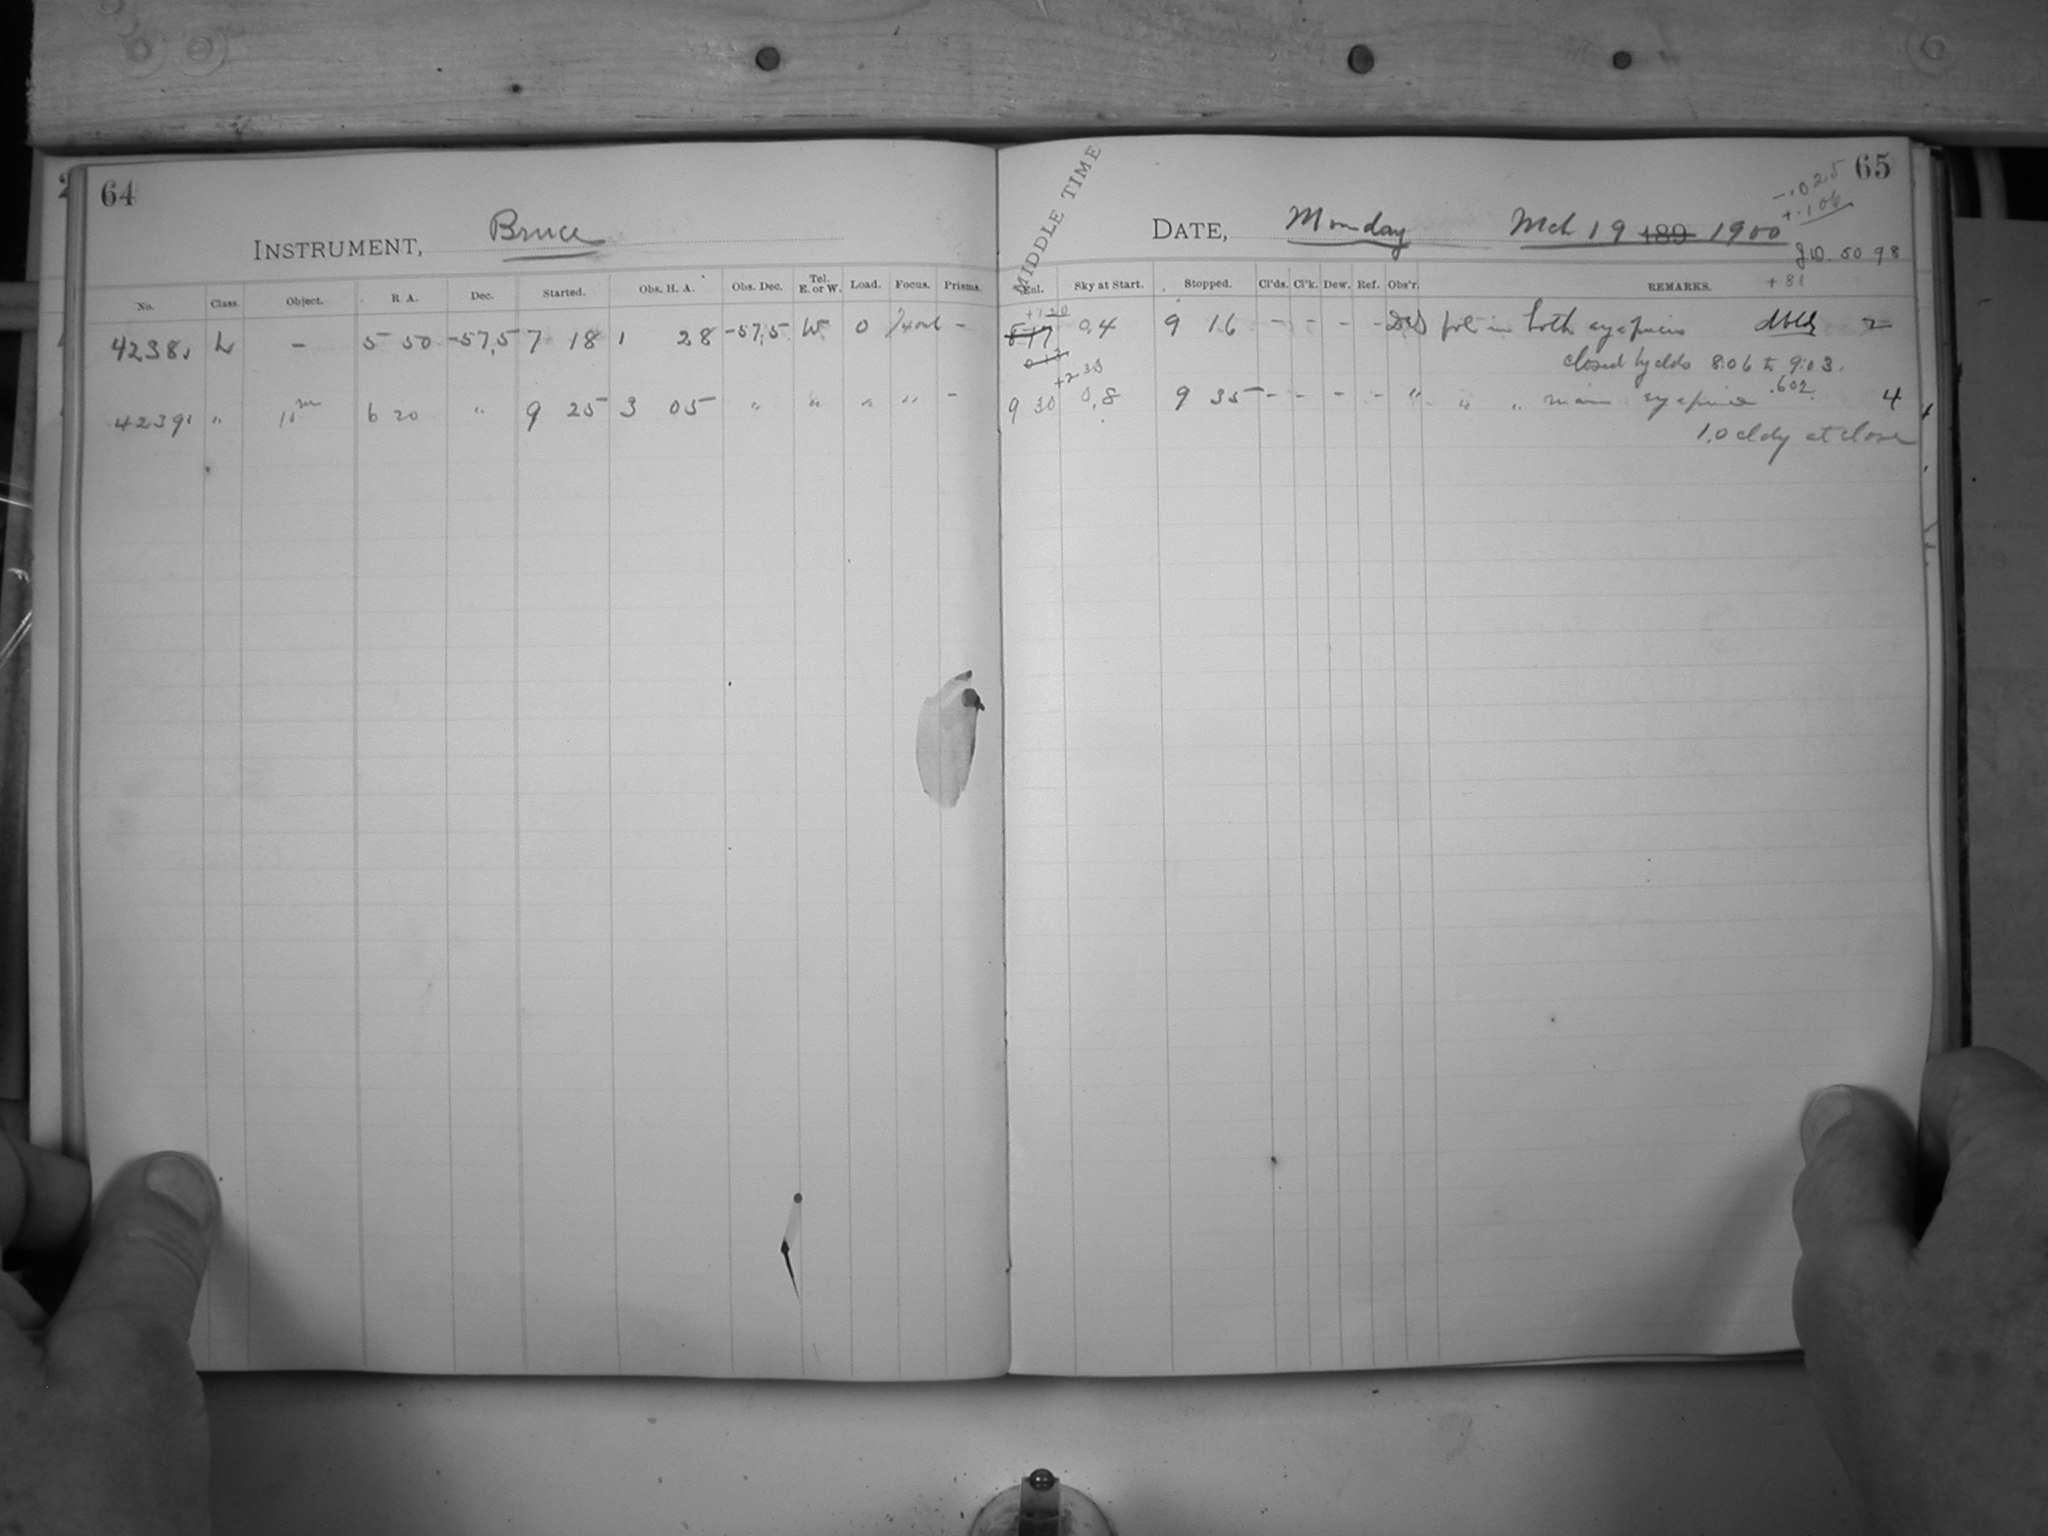 64
INSTRUMENT, Bruce
No. Class. Object. R. A. Dec. Started. Obs. H. A. Obs. Dec. Tel. E. or W. Load. Focus. Prisms.
4238. L - 5 50 -57,5 7 18 1 28 -57,5 W 0 -
4239. " 11m 6 20 " 9 25 3 05 " " " " -
MIDDLE TIME
65
-.025
+.106
DATE, Monday Mch 19 189 1900
J.D. 5098
Enl. Sky at Start. Stopped. Cl'ds. Cl'k. Dew. Ref. Obs'r. REMARKS. +81
+1 20
8 17 0,4 9 16 - - - - fol in both eyepieces dbld 2
closed by clds 8:06 to 9:03.
+2 38
9 30 0,8 9 35 - - - - " " " main eyepiece .602 4
1,0 cldy at close